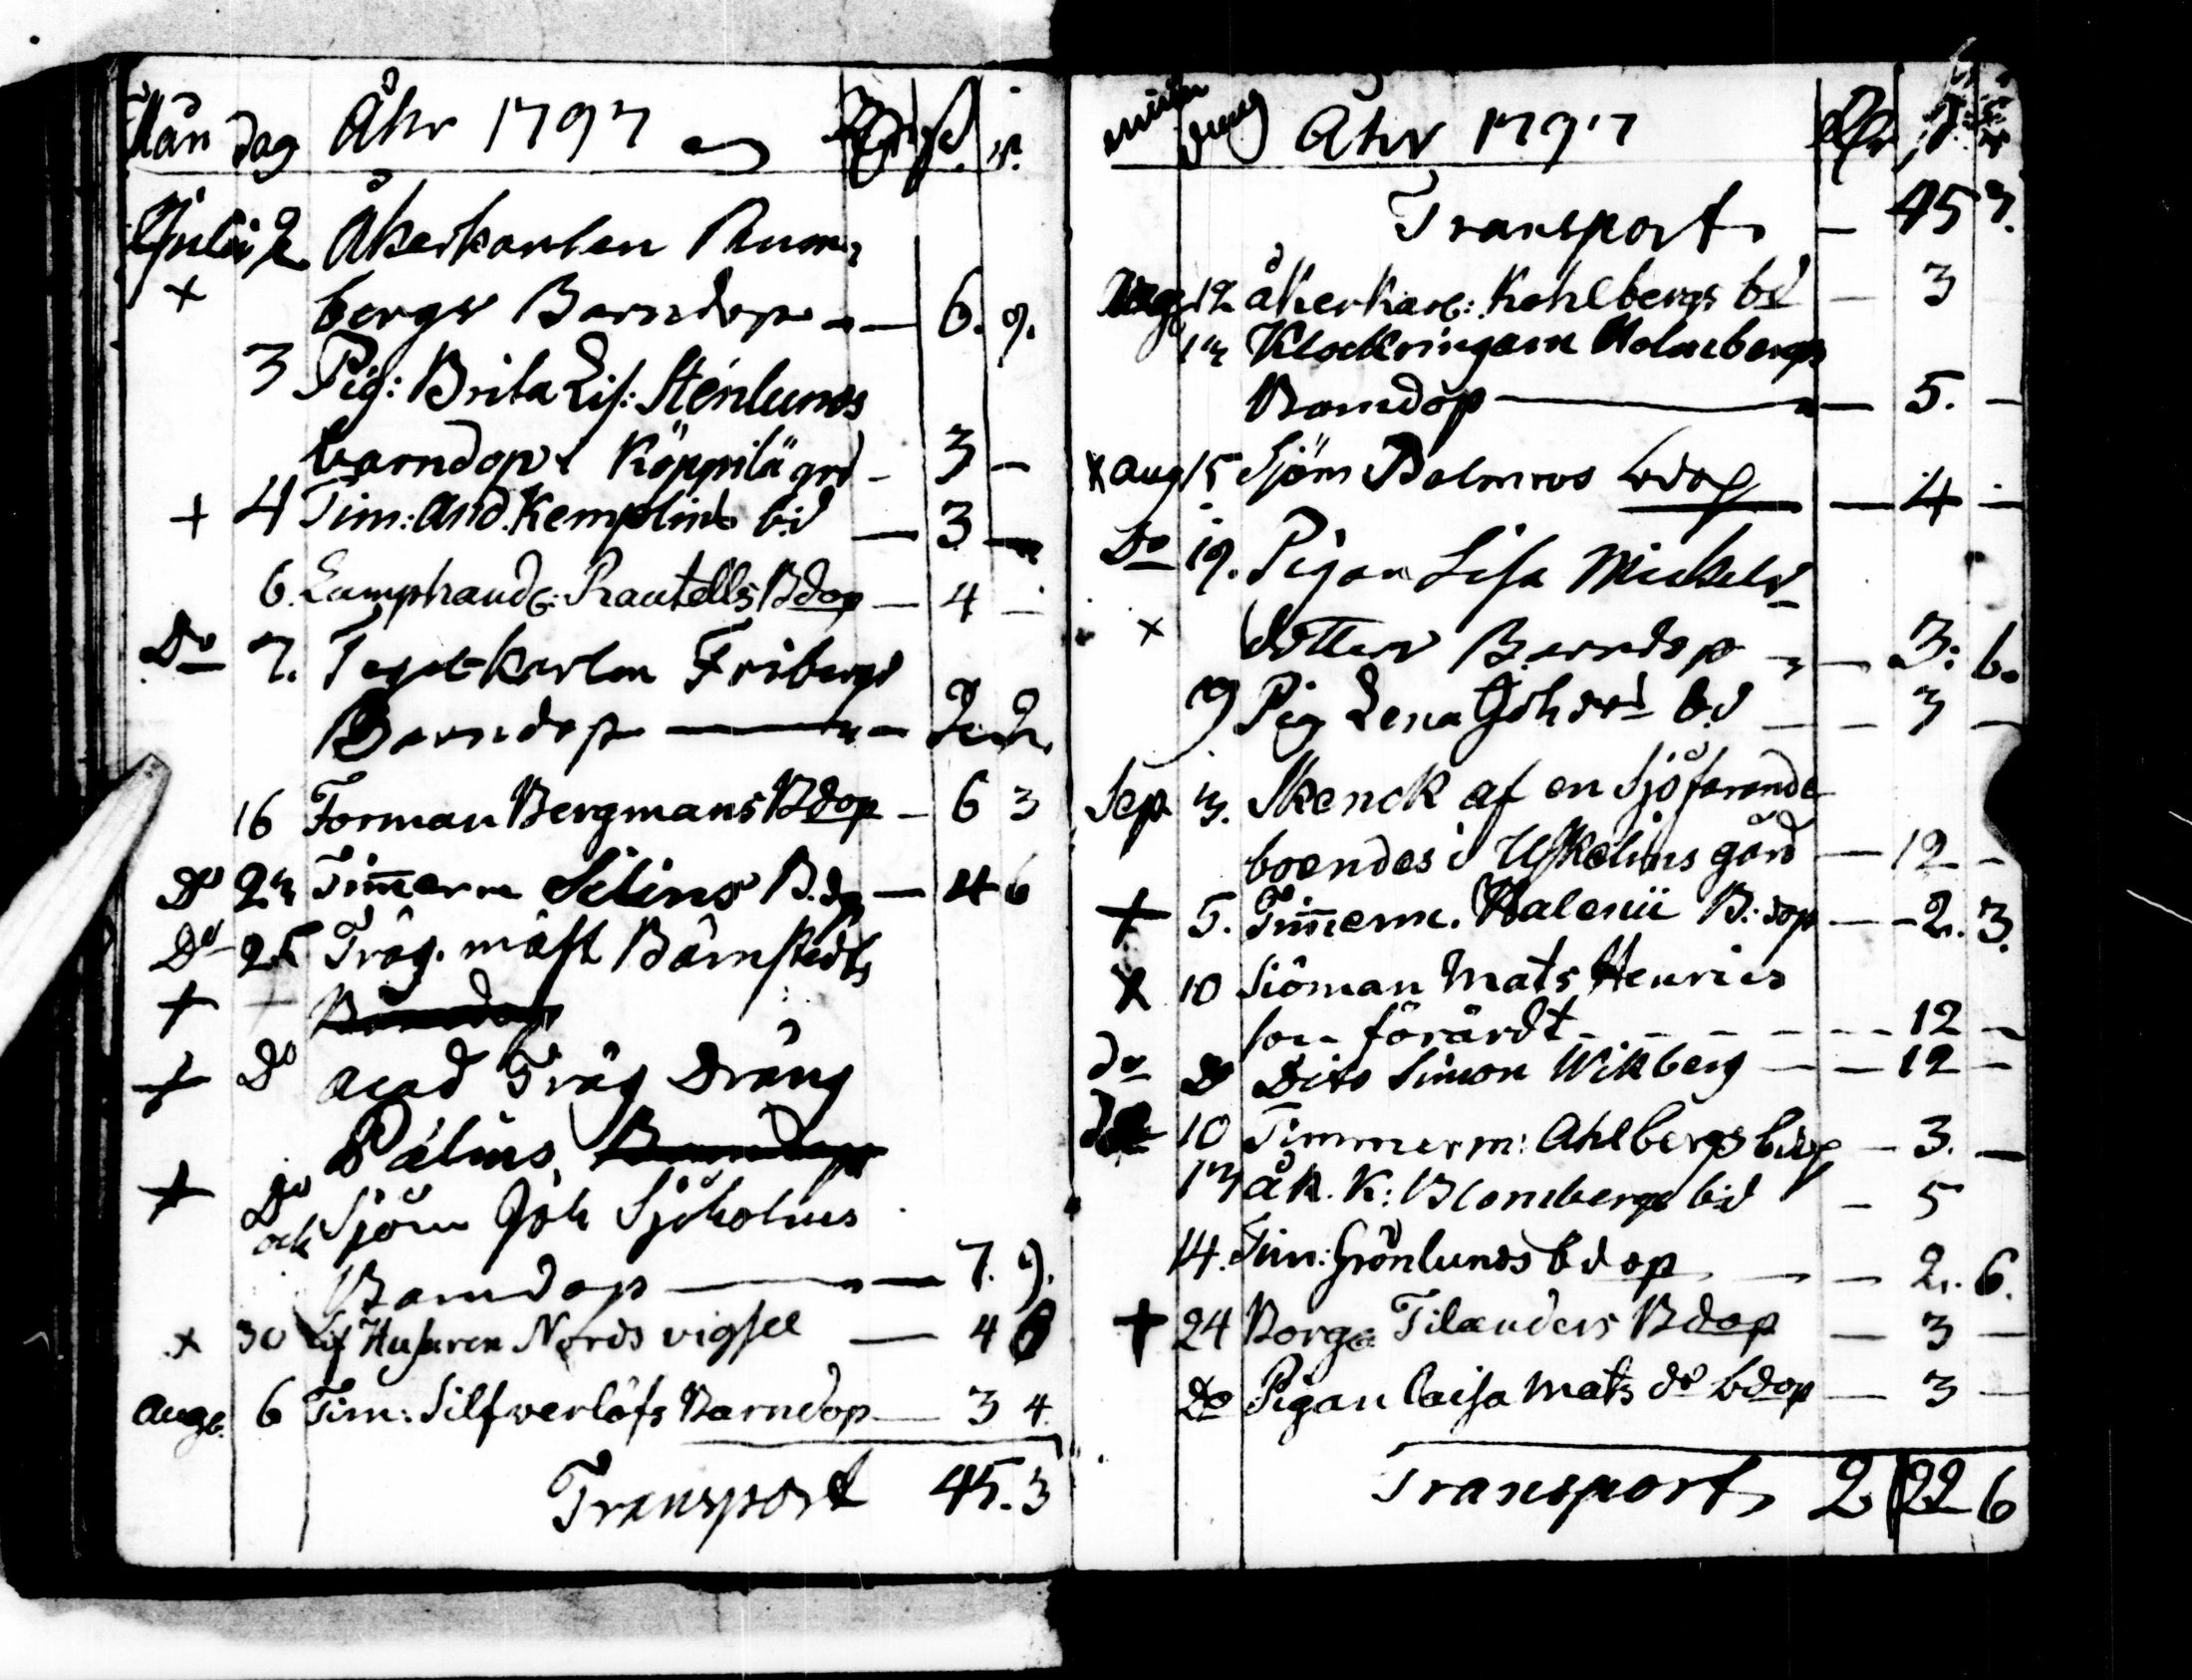 Mån dag Åhr 1797 Rdr s. r.
Julii 2 Åkerkarlen Rum-
+ bergs Barndop — 6. 9.
3 Pig: Brita Lis: Stenlunds
barndop i Köppilä grd - 3 -
+ 4 Tim: And. Kemplins bd — 3 —
6. Lumphandl: Rautells Bdop — 4 -
Do 7. Tegelkarlen Fribergs
Barndop — 2. 2.
16 Forman Bergmans Bdop - 6 3
Do 23 Timmerm Selins B.dp — 4 6
Do 25 Träg. mäst Bärnstedts
+ - Barndop
+ Do acad Träg Dräng
Palins, Barndop
+ Do och Sjöm Joh Sjöholms
Barndop — 7. 9.
+ 30 Lif Husaren Nords vigsel — 4 6
Aug. 6 Tim: Silfverlöfs Barndop — 3 4.
Transport 45. 3
mån dag Åhr 1797 Rdr s.
Transport — 45 3.
Aug 12 åkerkarl: Kahlbergs bd — 3
13 Klockringaren Holmbergs
Barndop — 5. —
x aug 15 Sjöm Balmros bdop — 4 —
Do 19. Pigan Lisa Mickels-
x dotters Barndop — 3: 6.
9 Pig Lena Johsd bd — 3 —
Sep 3. Skenck af en Sjöfarande
boendes i Uskelins gård — 12 -
+ 5. Timmerm. Walenii B:dop — 2. 3.
x 10 Siöman Mats Henrics
son förärdt - - - - 12 -
do Do Dito Simon Wikberg — 12 -
10 Timmerm: Ahlbergs bdop — 3. —
13 åk. K: Blombergs bd - 5
14. Tim: Grönlunds bdop — 2. 6.
+ 24 Borg. Tilanders Bdop — 3 —
Do Pigan Caisa Mats do bdop — 3 —
Transport 2 22 6